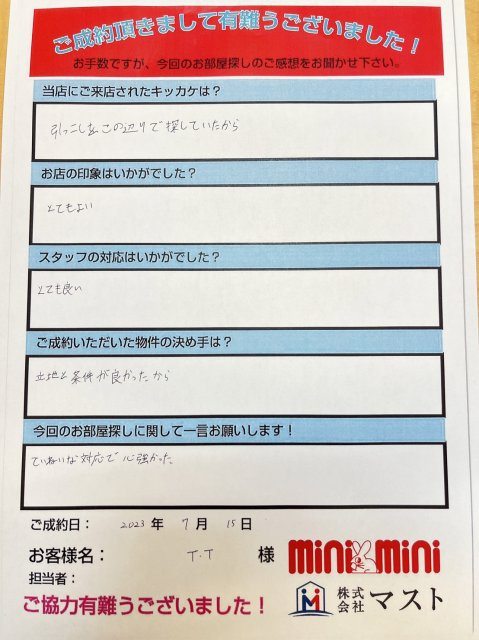 ご成約頂きまして有難うございました！
お手数ですが、今回のお部屋探しのご感想をお聞かせ下さい。
当店にご来店されたキッカケは？
引っこしを、この辺りで探していたから
お店の印象はいかがでした？
とてもよい
スタッフの対応はいかがでした？
とても良い
ご成約いただいた物件の決め手は？
立地と条件が良かったから
今回のお部屋探しに関して一言お願いします！
ていねいな対応で心強かった
ご成約日： 2023 年 7 月 15 日
お客様名： T.T 様
mini mini
担当者：
株式会社 マスト
ご協力有難うございました！